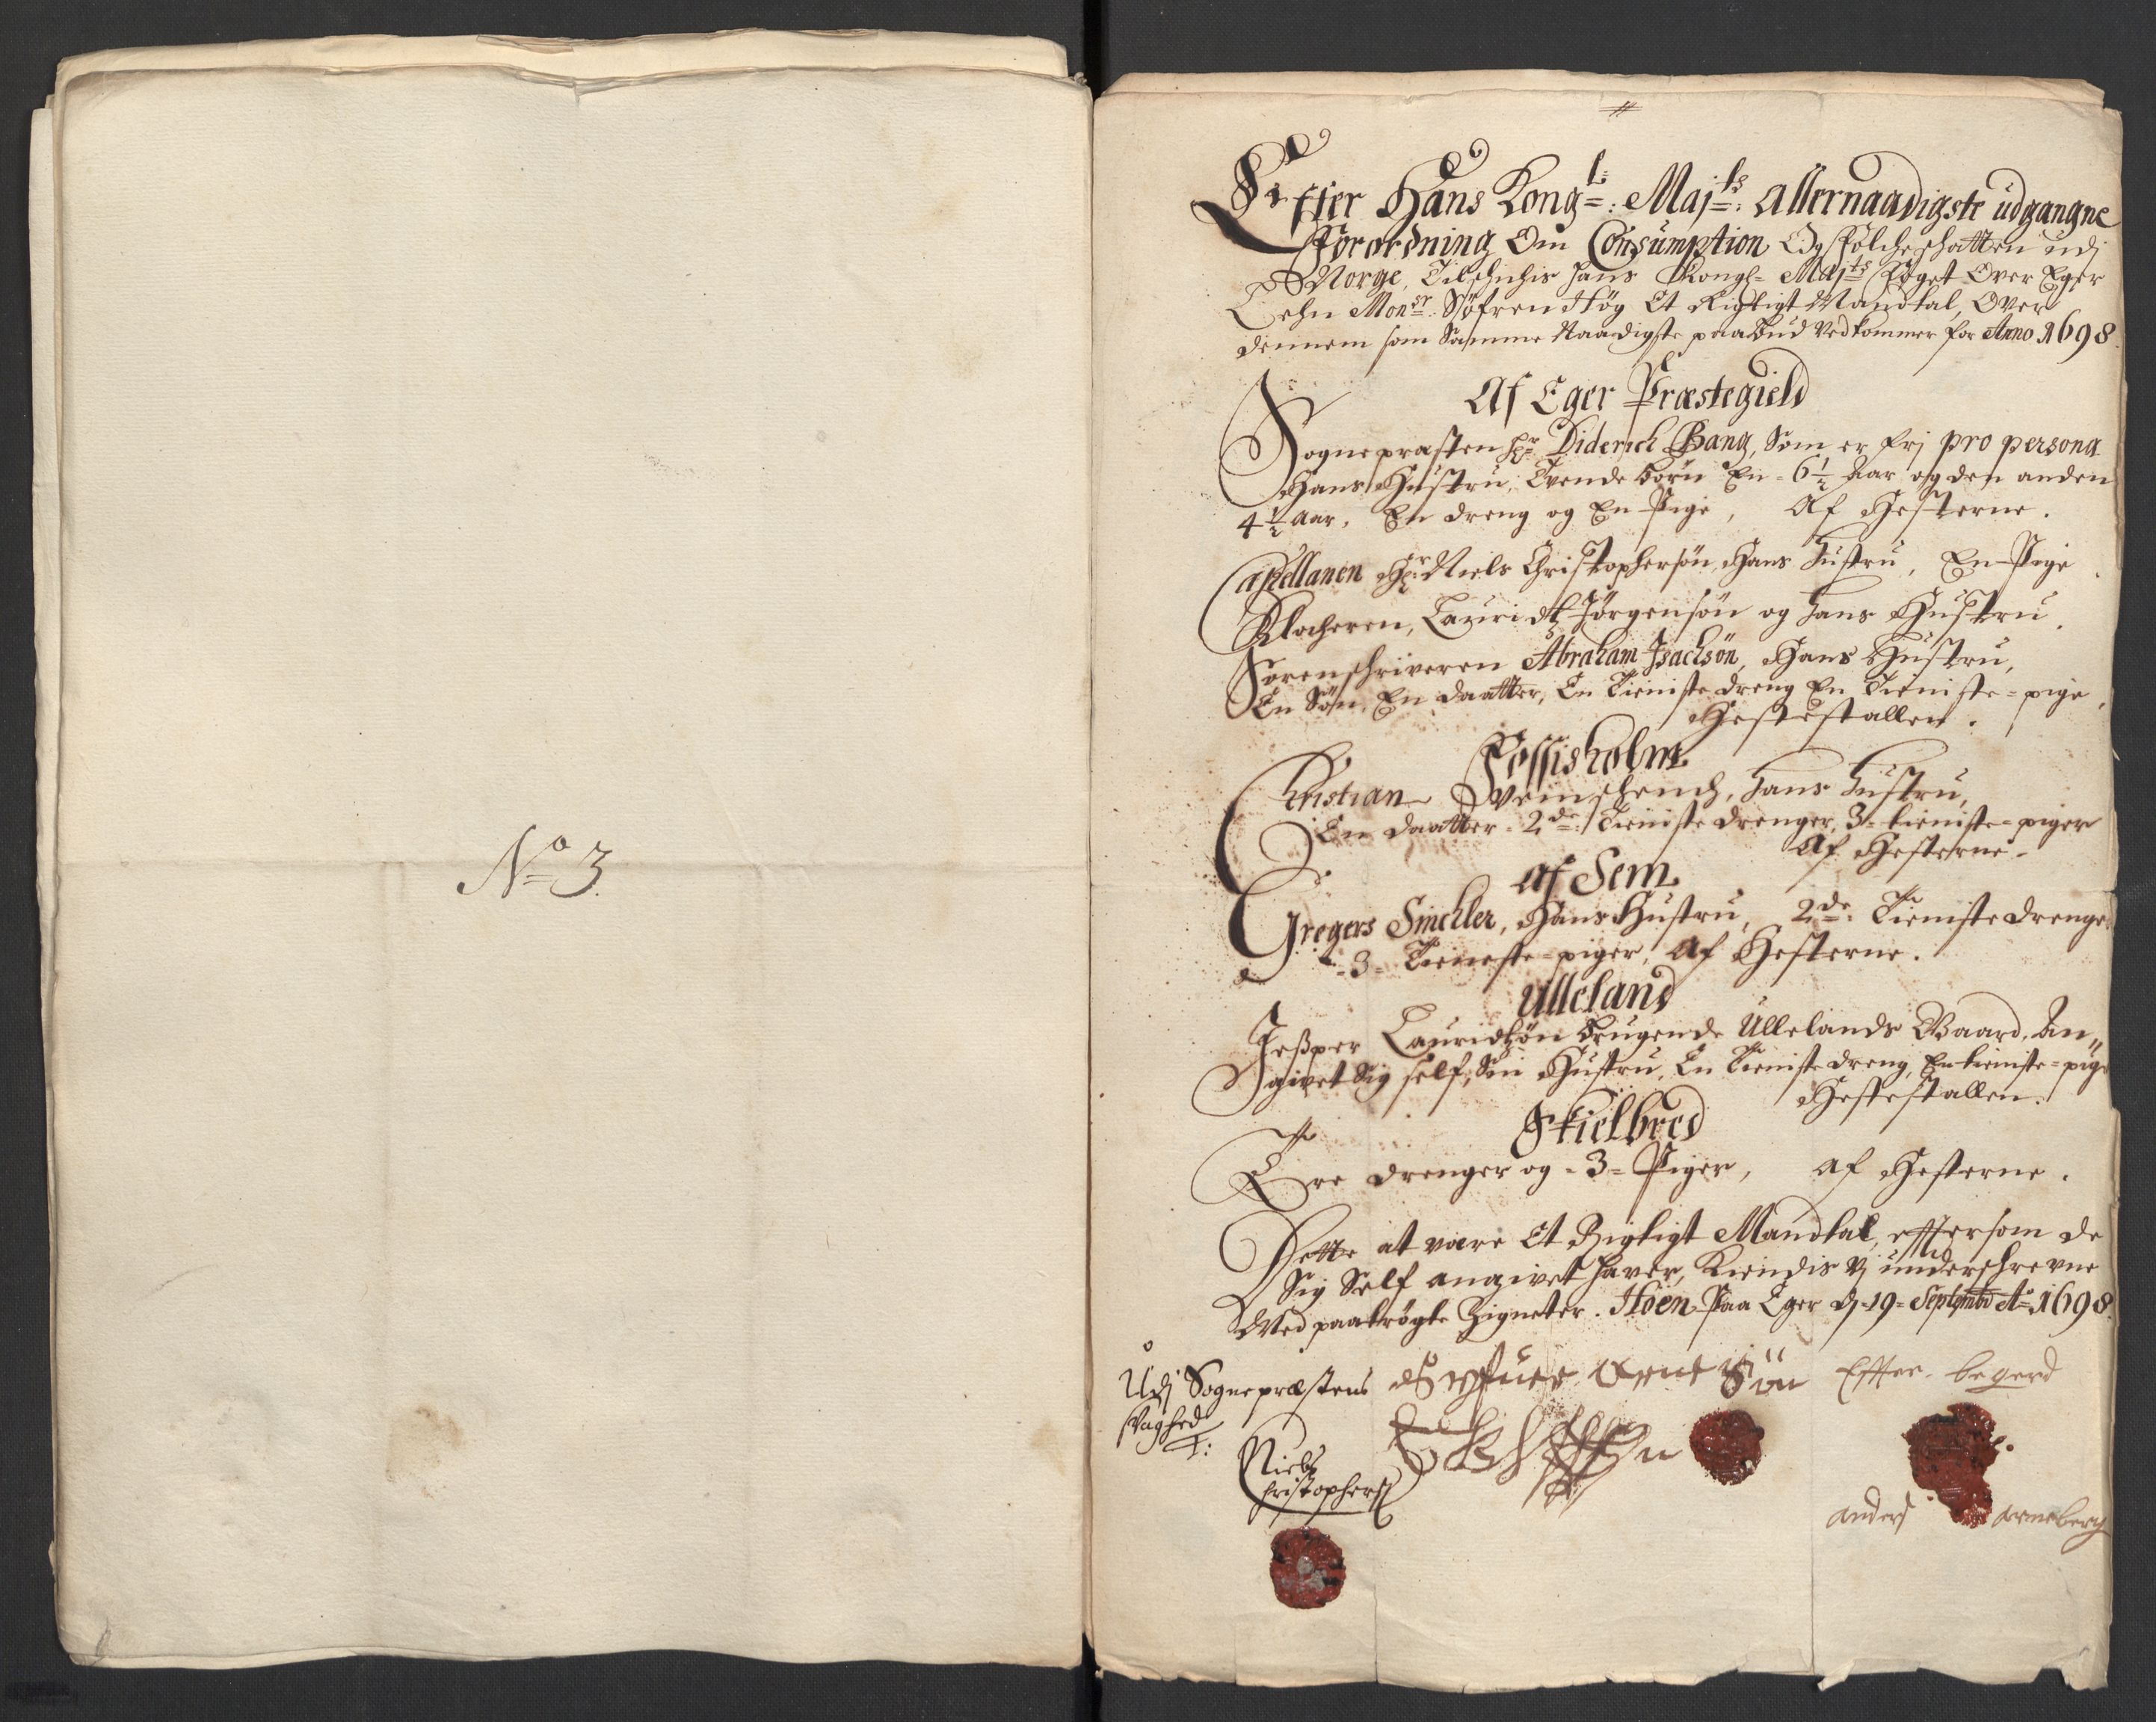 No 3.
Effter Hans Kongl: Majts: allernaadigste udgangne
Forordning Om Consumption Og Folcheschatten udj
Norge, Tilschichis hans Kongl= Majts Foget Over Eger
Lehn Monsr: Söfren Hög Et Rigtigt Mandtal, Over
dennem som Samme Naadigste paabud vedkommer for Anno 1698
Af Eger Præstegield
Sognepræsten Hr Diderich Bang, Som er frj pro persona
Hans Hustru, Tvende börn En = 6½ Aar og den anden
4½ Aar, En dreng og En Pige, Af Hesterne.
Capellanen Hr: Niels Christophersön, Hans Hustru, En Pige
Klocheren, Lauridtz Jörgensön og hans Hustru.
Sorenschriveren Abraham Isachsön, Hans Hustru,
En Sön, En daatter, En Tieniste dreng En Tieniste=pige,
Hestestallen.
Fossisholm
Christian hans hustru,
En daatter 2de: Tieniste drenger, 3= tieniste=piger
Af Hesterne.
Af Sem
Gregers Sinchler, Hans Hustru, 2de: Tieniste drenge
=3= Tieneste=piger, Af Hesterne.
Ulleland
Jesper Lauridtzön brugende Ullelands Gaard, An„
givet Sig self, Sin Hustru, En Tieniste dreng, En tieniste=pige
Hestestallen.
Skielbred
Tre drenger og =3= Piger, af Hesterne.
Dette at være Et Rigtigt Mandtal, efftersom de
Sig Self angivet haver, Kiendis Vj underschrevne
Med paatrögte Zigneter. Hoen Paa Eger d. 19= Septembr Ao 1698
Udj Sognepræstens
svaghed
Niels
Christophersen
Sön Effter begerd
anders arneberg